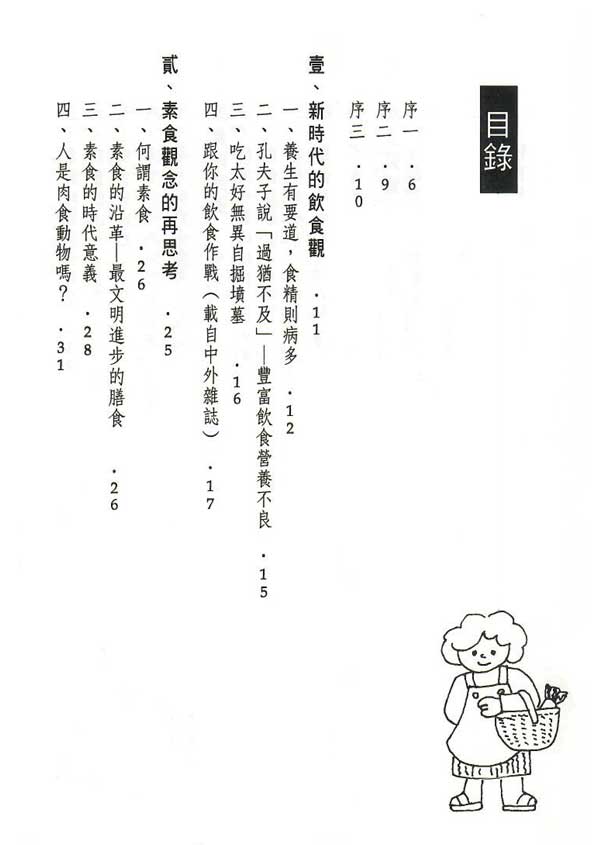 目錄
序一 ·6
序二 ·9
序三 ·10
壹、新時代的飲食觀 ·11
一、養生有要道，食精則病多 ·12
二、孔夫子說「過猶不及」—豐富飲食營養不良 ·15
三、吃太好無異自掘墳墓 ·16
四、跟你的飲食作戰（載自中外雜誌） ·17
貳、素食觀念的再思考 ·25
一、何謂素食 ·26
二、素食的沿革—最文明進步的膳食 ·26
三、素食的時代意義 ·28
四、人是肉食動物嗎？ ·31